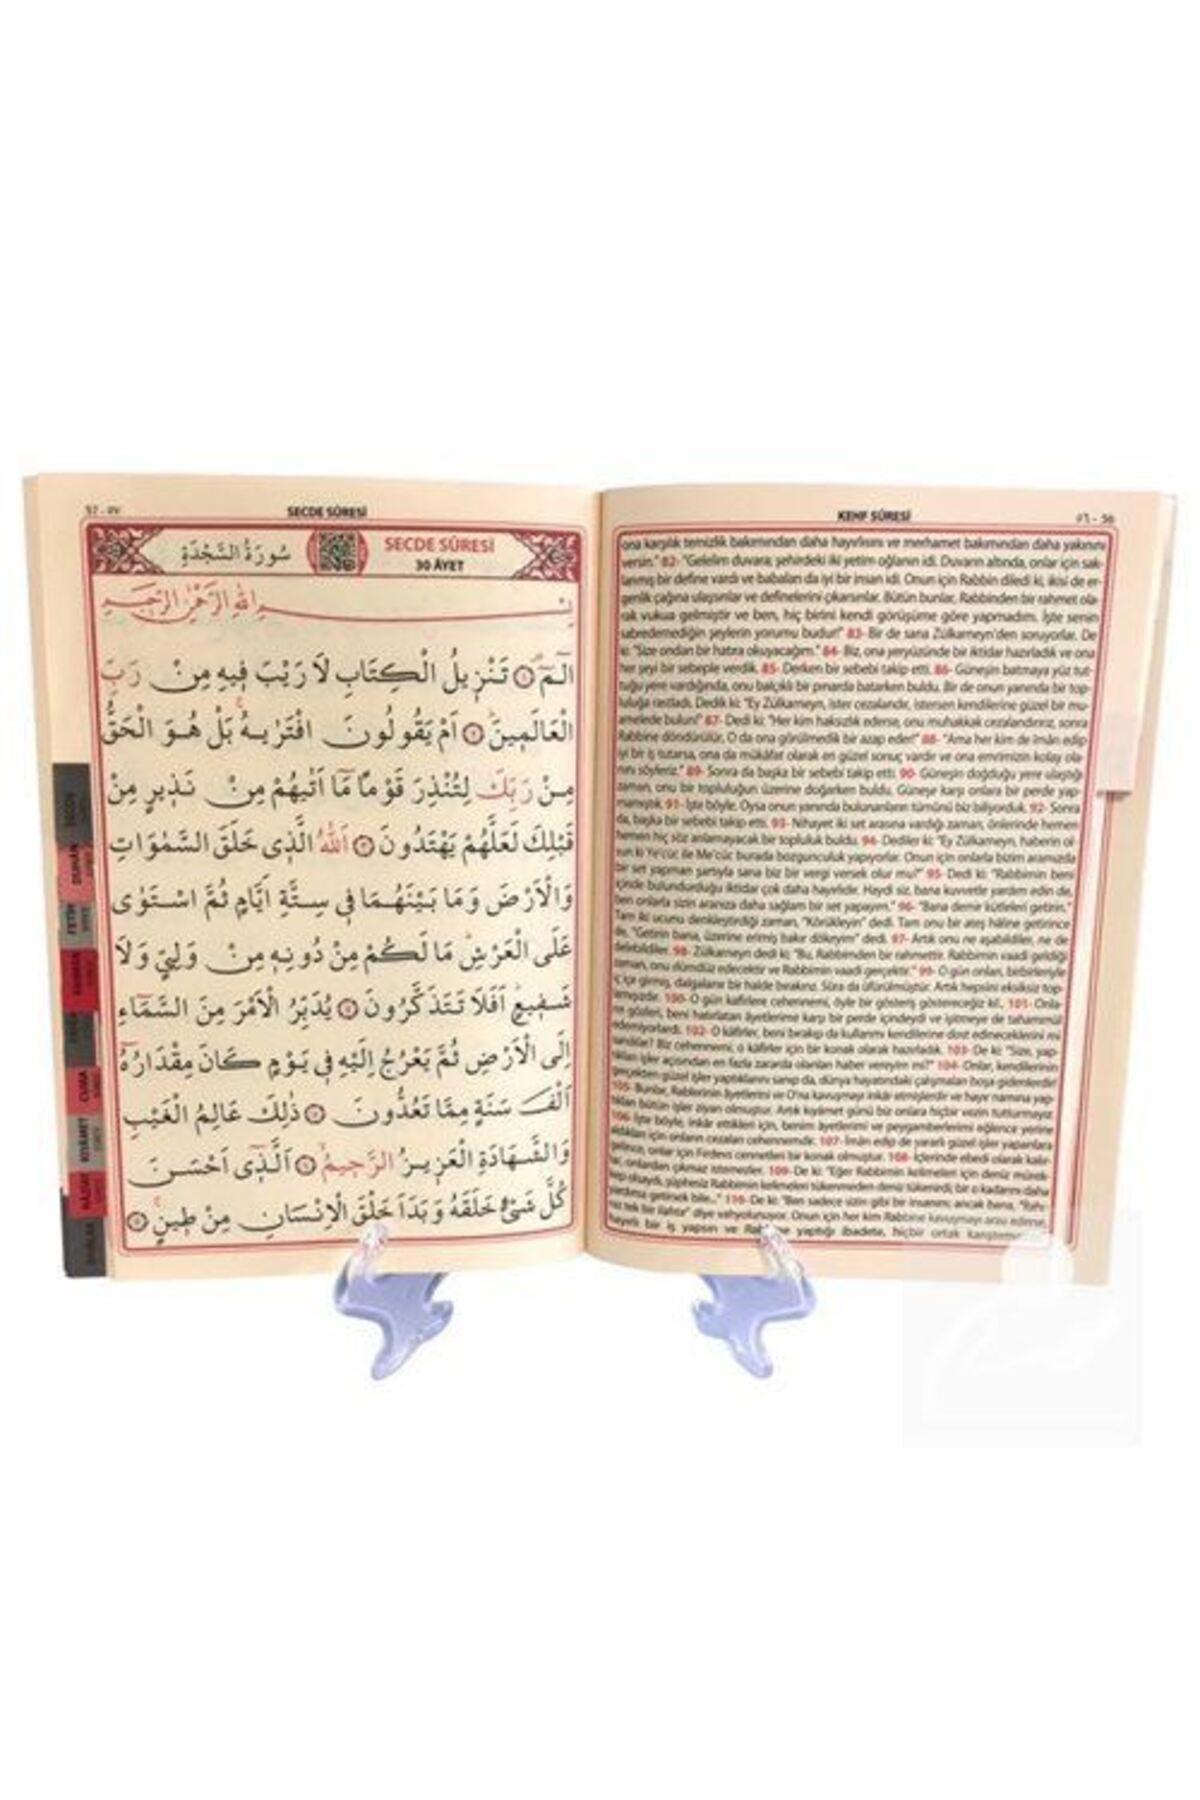 57 - ٥٧
SECDE SÛRESİ
سُورَةُ السَّجْدَةِ
SECDE SÛRESİ
30 ÂYET
بِسْمِ اللهِ الرَّحْمٰنِ الرَّحِيمِ
الٓمٓ ﴿١﴾ تَنْزِيلُ الْكِتَابِ لَا رَيْبَ فِيهِ مِنْ رَبِّ
الْعَالَمِينَ ﴿٢﴾ اَمْ يَقُولُونَ افْتَرٰيهُ بَلْ هُوَ الْحَقُّ
مِنْ رَبِّكَ لِتُنْذِرَ قَوْمًا مَٓا اَتٰيهُمْ مِنْ نَذِيرٍ مِنْ
قَبْلِكَ لَعَلَّهُمْ يَهْتَدُونَ ﴿٣﴾ اَللهُ الَّذِى خَلَقَ السَّمٰوَاتِ
وَالْاَرْضَ وَمَا بَيْنَهُمَا فِى سِتَّةِ اَيَّامٍ ثُمَّ اسْتَوٰى
عَلَى الْعَرْشِ مَا لَكُمْ مِنْ دُونِهِ مِنْ وَلِيٍّ وَلَا
شَفِيعٍ اَفَلَا تَتَذَكَّرُونَ ﴿٤﴾ يُدَبِّرُ الْاَمْرَ مِنَ السَّمَٓاءِ
اِلَى الْاَرْضِ ثُمَّ يَعْرُجُ اِلَيْهِ فِى يَوْمٍ كَانَ مِقْدَارُهُٓ
اَلْفَ سَنَةٍ مِمَّا تَعُدُّونَ ﴿٥﴾ ذٰلِكَ عَالِمُ الْغَيْبِ
وَالشَّهَادَةِ الْعَزِيزُ الرَّحِيمُ ﴿٦﴾ اَلَّذِٓى اَحْسَنَ
كُلَّ شَىْءٍ خَلَقَهُ وَبَدَاَ خَلْقَ الْاِنْسَانِ مِنْ طِينٍ ﴿٧﴾
SECDE
DUHAN
FETİH
RAHMAN
CUMA
KIYAMET
KEHF SÛRESİ
٥٦ - 56
ona karşılık temizlik bakımından daha hayırlısını ve merhamet bakımından daha yakınını
versin." 82- "Gelelim duvara; şehirdeki iki yetim oğlanın idi. Duvarın altında, onlar için sak-
lanmış bir define vardı ve babaları da iyi bir insan idi. Onun için Rabbin diledi ki, ikisi de er-
genlik çağına ulaşsınlar ve definelerini çıkarsınlar. Bütün bunlar, Rabbinden bir rahmet ola-
rak vukua gelmiştir ve ben, hiç birini kendi görüşüme göre yapmadım. İşte senin
sabredemediğin şeylerin yorumu budur!" 83- Bir de sana Zülkarneyn'den soruyorlar. De
ki: "Size ondan bir hatıra okuyacağım." 84- Biz, ona yeryüzünde bir iktidar hazırladık ve ona
her şeyi bir sebeple verdik. 85- Derken bir sebebi takip etti. 86- Güneşin batmaya yüz tut-
tuğu yere vardığında, onu balçıklı bir pınarda batarken buldu. Bir de onun yanında bir top-
luluğa rastladı. Dedik ki: "Ey Zülkarneyn, ister cezalandır, istersen kendilerine güzel bir mu-
amelede bulun!" 87- Dedi ki: "Her kim haksızlık ederse, onu muhakkak cezalandırırız, sonra
Rabbine döndürülür, O da ona görülmedik bir azap eder!" 88- "Ama her kim de îmân edip
iyi bir iş tutarsa, ona da mükâfat olarak en güzel sonuç vardır ve ona emrimizin kolay ola-
nını söyleriz." 89- Sonra da başka bir sebebi takip etti. 90- Güneşin doğduğu yere ulaştığı
zaman, onu bir topluluğun üzerine doğarken buldu. Güneşe karşı onlara bir perde yap-
mamıştık. 91- İşte böyle. Oysa onun yanında bulunanların tümünü biz biliyorduk. 92- Sonra
da, başka bir sebebi takip etti. 93- Nihayet iki set arasına vardığı zaman, önlerinde hemen
hemen hiç söz anlamayacak bir topluluk buldu. 94- Dediler ki: "Ey Zülkarneyn, haberin ol-
sun ki Ye'cüc ile Me'cüc burada bozgunculuk yapıyorlar. Onun için onlarla bizim aramızda
bir set yapman şartıyla sana biz bir vergi versek olur mu?" 95- Dedi ki: "Rabbimin beni
içinde bulundurduğu iktidar çok daha hayırlıdır. Haydi siz, bana kuvvetle yardım edin de,
ben onlarla sizin aranıza daha sağlam bir set yapayım." 96- "Bana demir kütleleri getirin."
Tam iki ucunu denkleştirdiği zaman, "Körükleyin" dedi. Tam onu bir ateş hâline getirince
de, "Getirin bana, üzerine erimiş bakır dökeyim" dedi. 97- Artık onu ne aşabildiler, ne de
delebildiler. 98- Zülkarneyn dedi ki: "Bu, Rabbimden bir rahmettir. Rabbimin vaadi geldiği
zaman, onu dümdüz edecektir ve Rabbimin vaadi gerçektir." 99- O gün onları, birbirleriyle
iç içe girmiş, dalgalanır bir halde bırakırız. Sûra da üfürülmüştür. Artık hepsini eksiksiz top-
lamışızdır. 100- O gün kafirlere cehennemi, öyle bir gösteriş göstereceğiz ki!.. 101- Onla-
rın gözleri, beni hatırlatan âyetlerime karşı bir perde içindeydi ve işitmeye de tahammül
edemiyorlardı. 102- O kâfirler, beni bırakıp da kullarımı kendilerine dost edineceklerini mi
sandılar? Biz cehennemi, o kâfirler için bir konak olarak hazırladık. 103- De ki: "Size, yap-
tıkları işler açısından en fazla zararda olanları haber vereyim mi?" 104- Onlar, kendilerinin
gerçekten güzel işler yaptıklarını sanıp da, dünya hayatındaki çalışmaları boşa gidenlerdir!
105- Bunlar, Rablerinin âyetlerini ve O'na kavuşmayı inkâr etmişlerdir ve hayır namına yap-
tıkları bütün işler ziyan olmuştur. Artık kıyâmet günü biz onlara hiçbir vezin tutturmayız.
106- İşte böyle, inkâr ettikleri için, benim âyetlerimi ve peygamberlerimi eğlence yerine
aldıkları için onların cezaları cehennemdir. 107- Îmân edip de yararlı güzel işler yapanlara
gelince, onlar için Firdevs cennetleri bir konak olmuştur. 108- İçlerinde ebedi olarak kalır-
lar, onlardan çıkmaz istemezler. 109- De ki: "Eğer Rabbimin kelimeleri için deniz mürek-
kep olsaydı, şüphesiz Rabbimin kelimeleri tükenmeden deniz tükenirdi; bir o kadarını daha
yardıma getirsek bile..." 110- De ki: "Ben sadece sizin gibi bir insanım; ancak bana, "Rabbi-
niz tek bir ilahtır" diye vahyolunuyor. Onun için her kim Rabbine kavuşmayı arzu ederse,
hayırlı bir iş yapsın ve yaptığı ibadete, hiçbir ortak